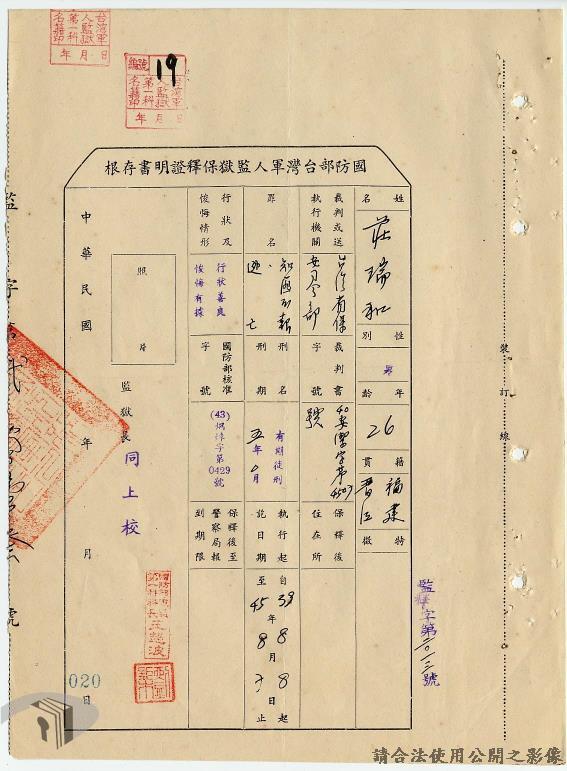 台灣軍人監獄第一科名籍印
年 月 日
編號 19
台灣軍人監獄第一科名籍印
年 月 日
國防部台灣軍人監獄保釋證明書存根
姓名 莊瑞和
性別 男
年齡 26
籍貫 福建晋江
特徵
裁判或送執行機關 台湾省保安司令部
裁判書字號 40安潔字第4507號
保釋後住在所
罪名 知匪不報、逃亡
刑名刑期 有期徒刑五年0月
執行起訖日期 自39年8月8日起至45年8月7日止
行狀及悛悔情形 行狀善良悛悔有據
國防部核准字號 (43)煜倖字第0429號
保釋後至警察局報到期限
照片
監獄長 同上校
中華民國 年 月 日
020
監釋字第二〇一三號
裝訂線
請合法使用公開之影像